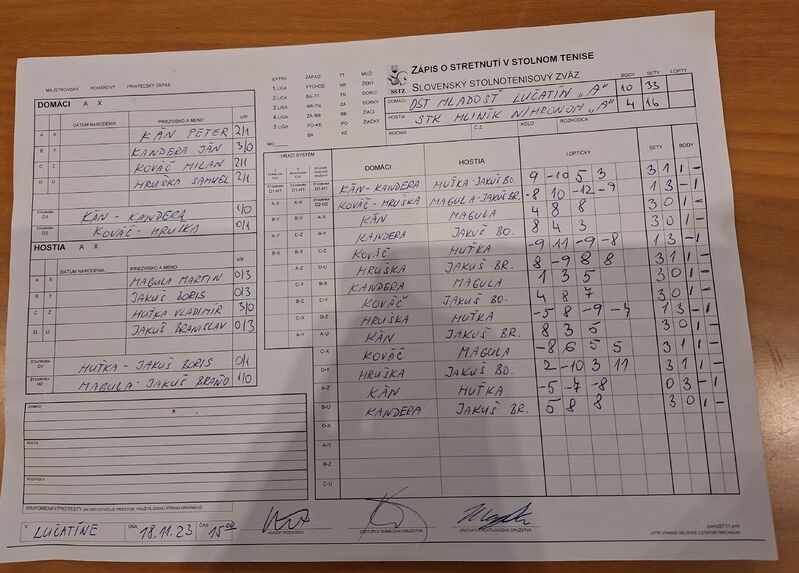 ZÁPIS O STRETNUTÍ V STOLNOM TENISE
SLOVENSKÝ STOLNOTENISOVÝ ZVÄZ
SSTZ
BODY SETY LOPTY
DOMÁCI DST MLADOSŤ LUČATÍN „A" 10 33
HOSTIA STK HLINÍK N/HRONOM „A" 4 16
ROČNÍK Č.Z. KOLO ROZHODCA
MAJSTROVSKÝ POHÁROVÝ PRIATEĽSKÝ ZÁPAS
EXTRA ZÁPAD TT MUŽI
1.LIGA VÝCHOD NR ŽENY
2.LIGA BA-TT TN DORCI
3.LIGA NR-TN ZA DORKY
4.LIGA ZA-BB BB ŽIACI
5.LIGA PO-KE PO ŽIAČKY
BA KE
MO
DOMÁCI A X
DÁTUM NARODENIA PRIEZVISKO A MENO V/P
A X KÁN PETER 2/1
B Y KANDERA JÁN 3/0
C Z KOVÁČ MILAN 2/1
D U HRUŠKA SAMUEL 2/1
ŠTVORHRA D1 KÁN - KANDERA 1/0
ŠTVORHRA D2 KOVÁČ - HRUŠKA 0/1
HOSTIA A X
DÁTUM NARODENIA PRIEZVISKO A MENO V/P
A X MAGULA MARTIN 0/3
B Y JAKUŠ BORIS 0/3
C Z HUŤKA VLADIMÍR 3/0
D U JAKUŠ BRANISLAV 0/3
ŠTVORHRA D1 HUŤKA - JAKUŠ BORIS 0/1
ŠTVORHRA H2 MAGULA - JAKUŠ BRAŇO 1/0
HRACÍ SYSTÉM DOMÁCI HOSTIA LOPTIČKY SETY BODY
D1-H1 D1-H1 D1-H1 KÁN - KANDERA HUŤKA-JAKUŠ BO. 9 -10 5 3 3 1 1 -
A-X A-X D2-H2 KOVÁČ - HRUŠKA MAGULA-JAKUŠ BR. -8 10 -12 -9 1 3 - 1
B-Y B-Y A-X KÁN MAGULA 4 8 8 3 0 1 -
A-Y C-Z B-Y KANDERA JAKUŠ BO. 8 4 3 3 0 1 -
B-X B-X C-Z KOVÁČ HUŤKA -9 11 -9 -8 1 3 - 1
A-Z D-U HRUŠKA JAKUŠ BR. 8 -9 8 8 3 1 1 -
C-Y B-X KANDERA MAGULA 1 3 5 3 0 1 -
B-Z C-Y KOVÁČ JAKUŠ BO. 4 8 7 3 0 1 -
C-X D-Z HRUŠKA HUŤKA -5 8 -9 -7 1 3 - 1
A-Y A-U KÁN JAKUŠ BR. 8 3 5 3 0 1 -
C-X KOVÁČ MAGULA -8 6 5 5 3 1 1 -
D-Y HRUŠKA JAKUŠ BO. 2 -10 3 11 3 1 1 -
A-Z KÁN HUŤKA -5 -7 -8 0 3 - 1
B-U KANDERA JAKUŠ BR. 5 8 8 3 0 1 -
D-X
A-Y
B-Z
C-U
DOMÁCI
HOSTIA
ROZHODCA
PRIPOMIENKY/PROTESTY (AK NEPOSTAČUJE PRIESTOR, POUŽITE ZADNÚ STRANU ORIGINÁLU)
V LUČATÍNE DŇA 18.11.23 ČAS 15 00
HLAVNÝ ROZHODCA
ZÁSTUPCA DOMÁCEHO DRUŽSTVA
ZÁSTUPCA HOSŤUJÚCEHO DRUŽSTVA